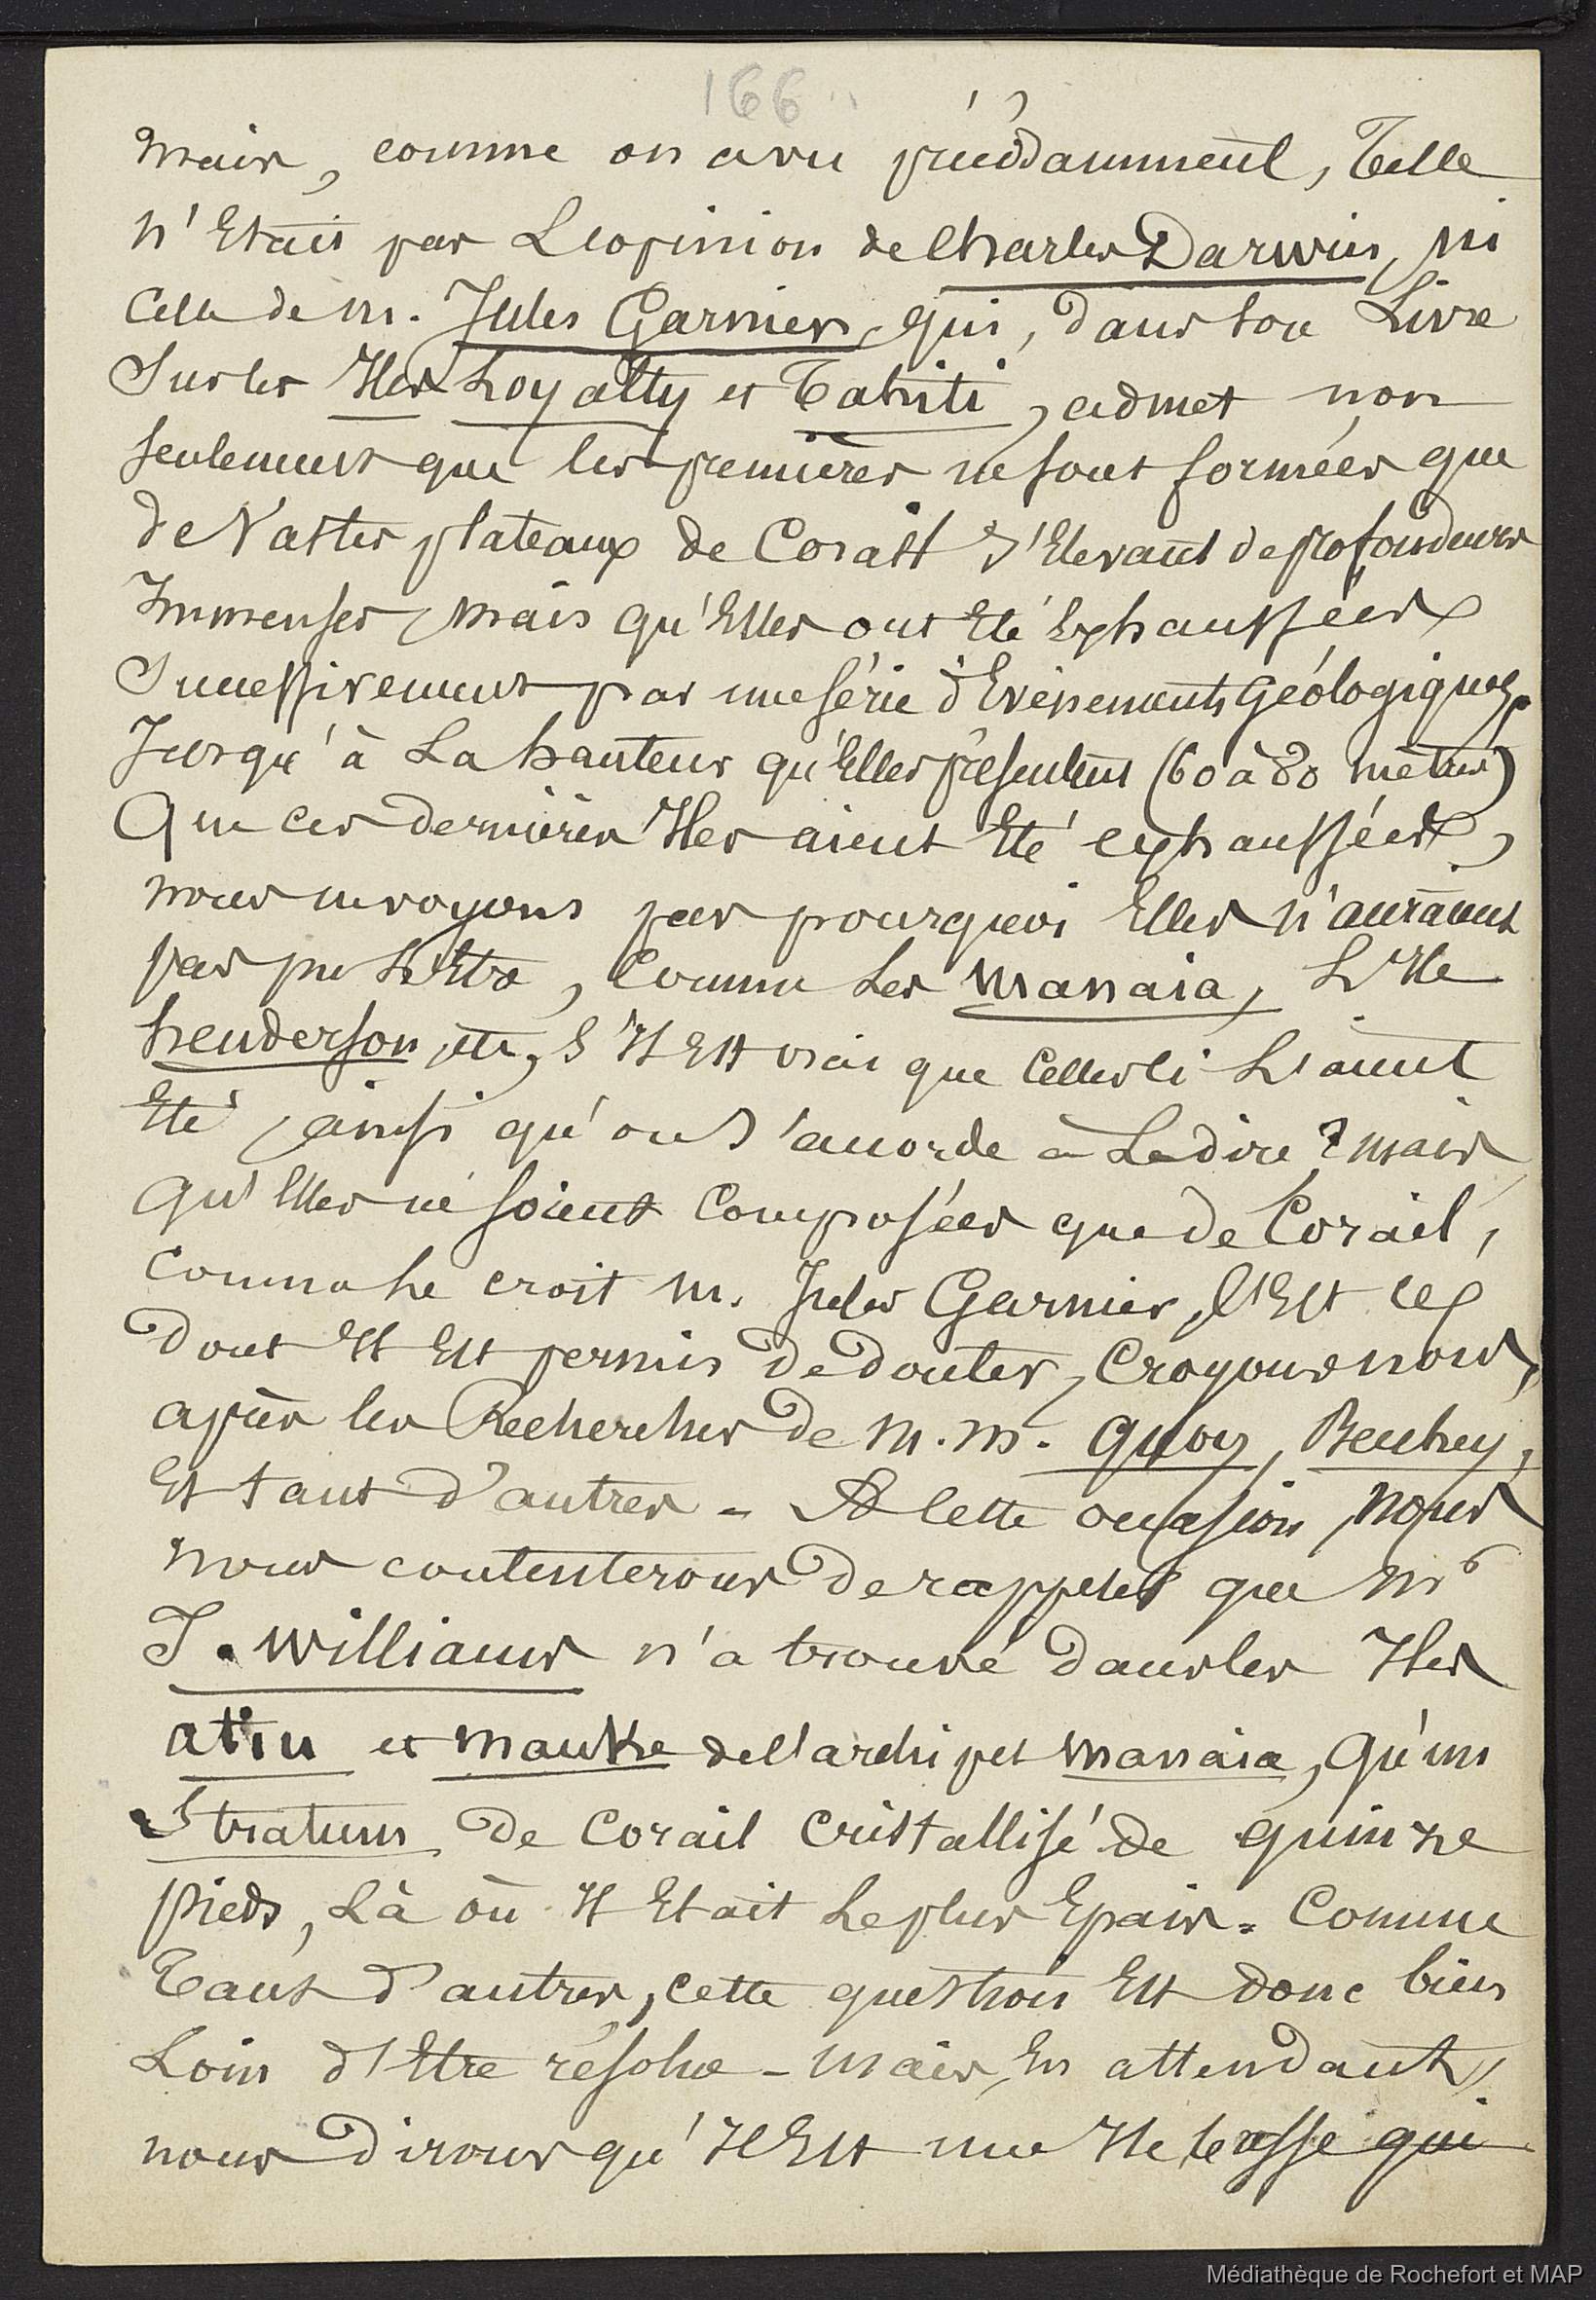 166
mais, comme on a vu précédamment, Telle
n'Etait pas L'opinion de Charles Darwin, ni
Celle de m. Jules Garnier, qui, dans son Livre
Sur les Iles Loyalty et Tahiti, admet non
seulement que les premières ne sont formées que
de Vastes plateaux de Corail s'Elevant de profondeurs
Immenses, mais qu'Elles ont Eté Exhaussées
Successivement par une série d'Evènements Géologiques,
Jusqu'à La hauteur qu'Elles présentent (60 à 80 mètres)
Que ces dernières Iles aient Eté exhaussées,
nous ne voyons pas pourquoi Elles n'auraient
pas pu L'Etre, Comme Les Manaia, L'Ile
henderson, etc, s'Il Est vrai que Celles ci L'aient
Eté, ainsi qu'on s'accorde à Le dire ? mais
qu'Elles ne soient Composées que de Corail,
Comme Le croit m. Jules Garnier, C'Est ce
dont Il Est permis de douter, Croyons nous,
après les Recherches de M.M. Quoy, Beechey,
Et tant d'autres - A Cette occasion, nous
nous contenterons de rappeler que Mr
J. Williams n'a trouvé dans les Iles
atiu et Mauke de l'archipel Manaia, qu'un
Stratum de Corail Cristallisé de quinze
pieds, Là où Il Etait Le plus Epais. Comme
Tant d'autres, cette question Est donc bien
Loin d'Etre résolue - mais, En attendant,
nous dirons qu'Il Est une Ile basse qui
Médiathèque de Rochefort et MAP